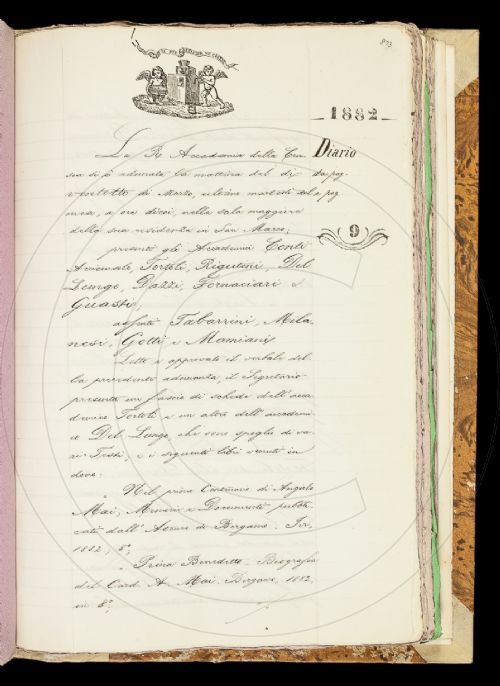 873
1882
Diario
da pag.
a pag
9
La R. Accademia della Cru
sca si è adunata la mattina del dì
ventotto di Marzo, ultimo martedì del
mese, a ore dieci, nella sala maggiore
della sua residenza in San Marco;
presenti gli Accademici Conti
Arciconsolo, Tortoli, Rigutini, Del
Lungo, Dazzi, Fornaciari e
Guasti;
assenti Tabarrini, Mila-
nesi, Gotti e Mamiani
Letto e approvato il verbale del-
la precedente adunanza, il Segretario
presenta un fascio di schede dell'acca-
demico Tortoli e un altro dell'accademi-
co Del Lungo, che sono spogli di va-
ri Testi, e i seguenti libri venuti in
dono:
Nel primo Centenario di Angelo
Mai, Memorie e Documenti pubbli-
cati dall'Ateneo di Bergamo.
1882, 8°;
Prina Benedetto. Biografia
del Card. A. Mai. Bergamo, 1882,
in 8°;